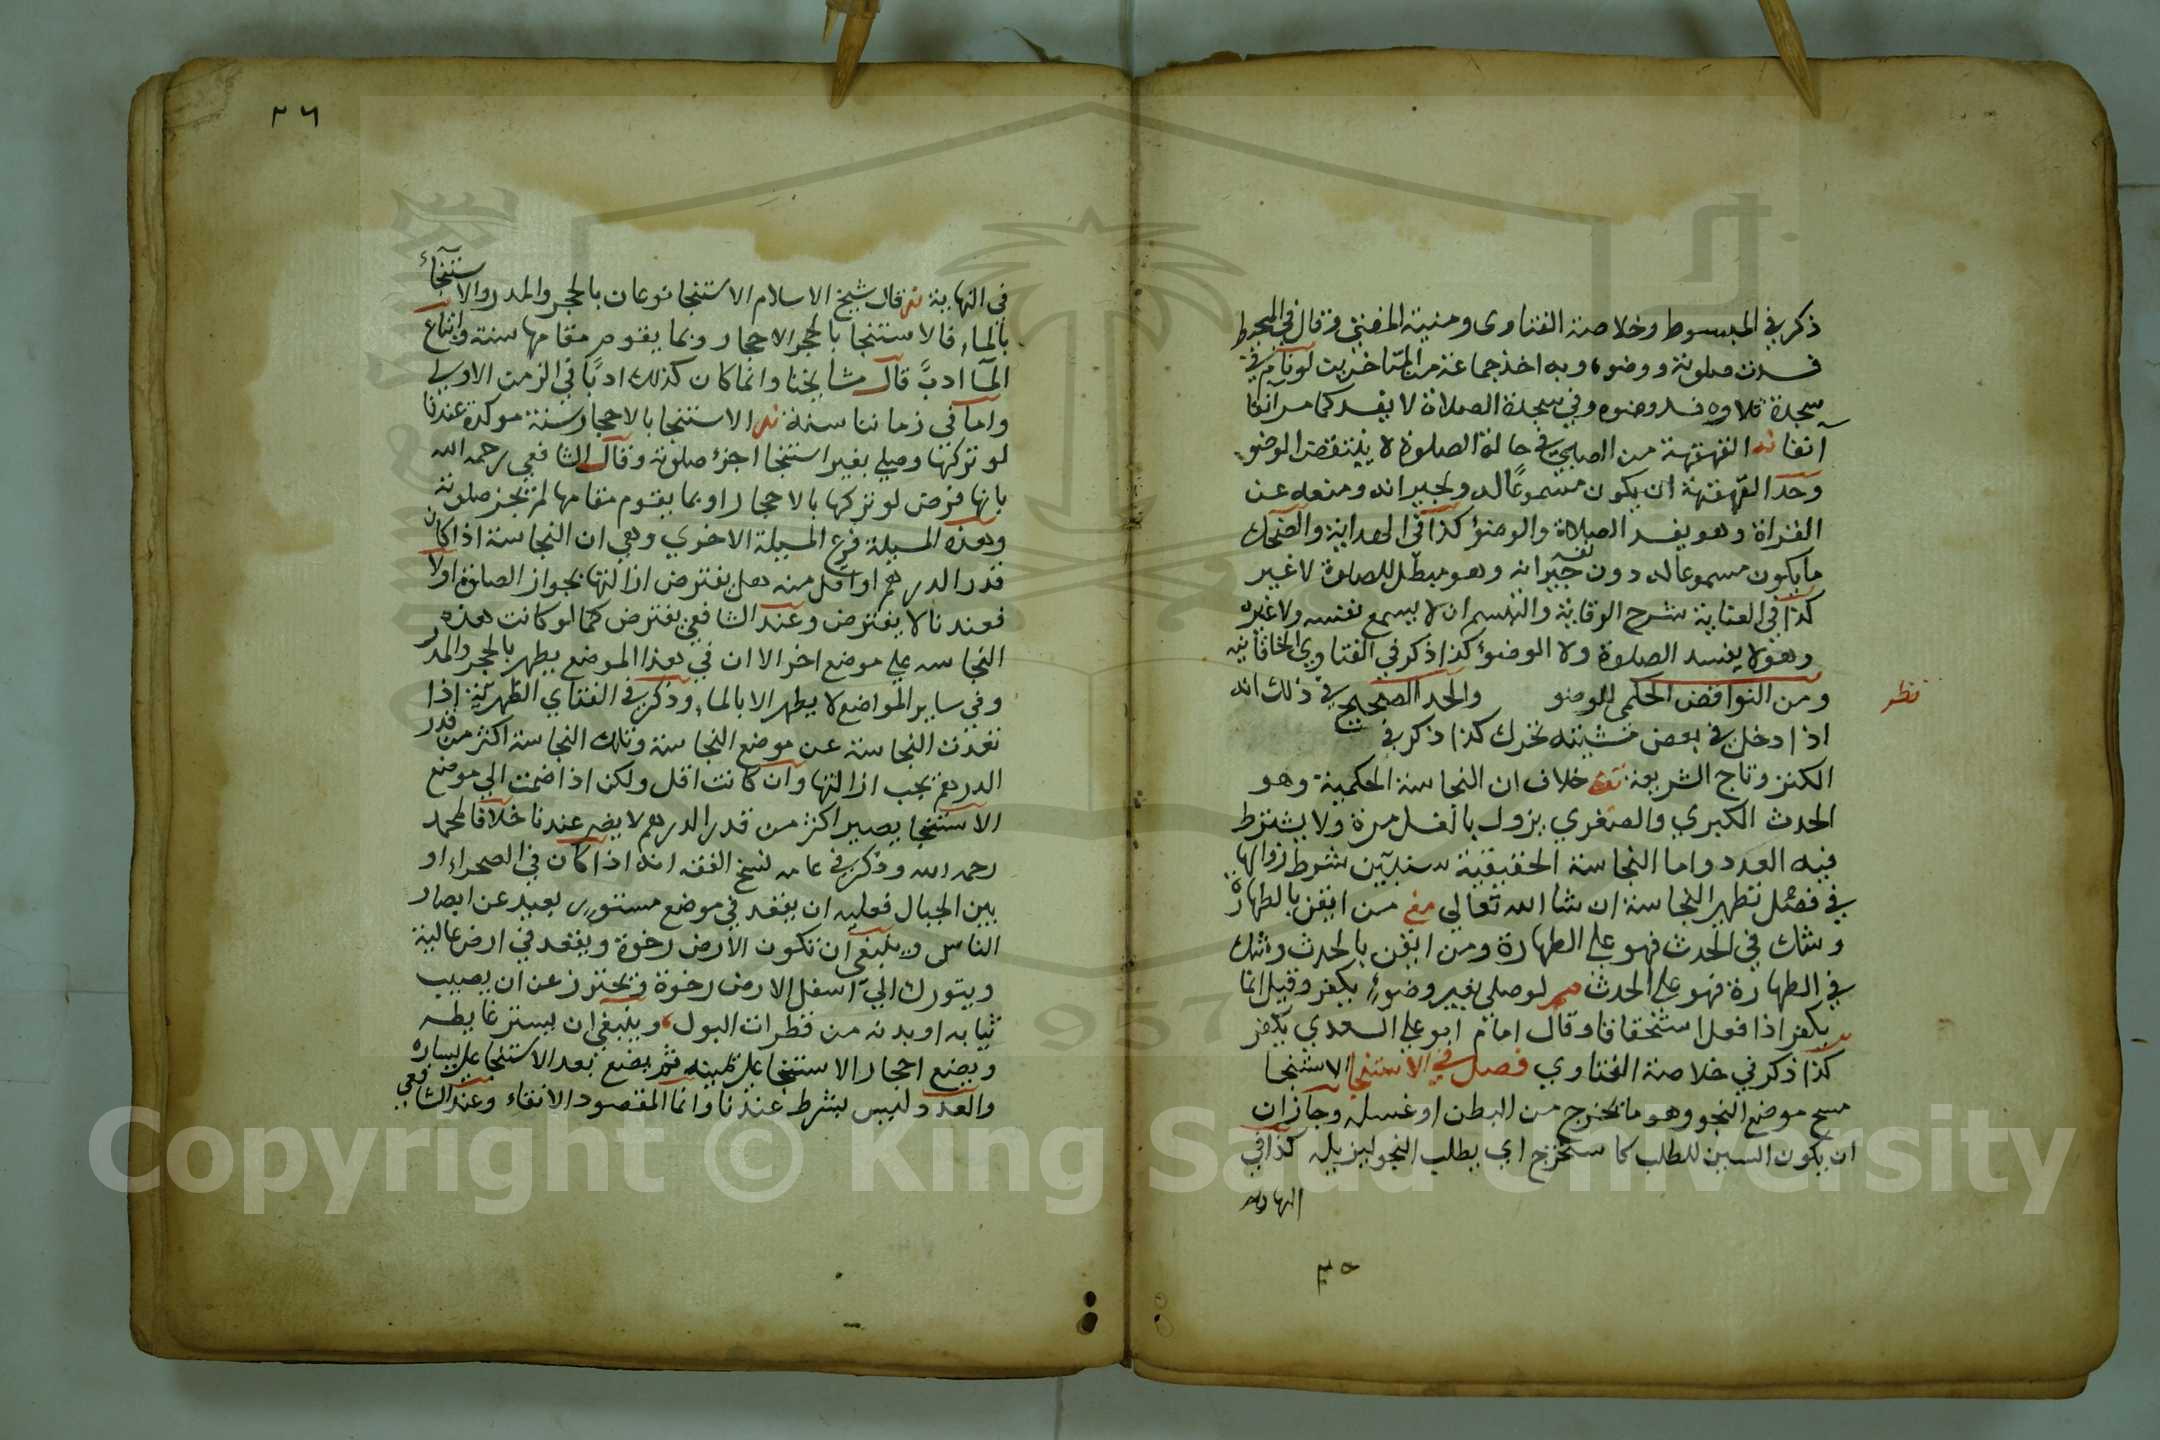 ذكر في المبسوط وخلاصة الفتاوى ومنية المفتي قال في المحيط
فسدت صلوته ووضوه وبه اخذ جماعة من المتاخرين لو نام في
سجدة تلاوه فسد وضوه وفي سجدة الصلاة لا يفسد كما مر انفا
آنفا القهقهة من الصبي في حالة الصلوة لا ينتقض الوضو
وحد القهقهة ان يكون مسموعًا له ولجيرانه ومنعه عن
القراة وهو يفسد الصلاة والوضؤ كذا في الهداية والضحك
ما يكون مسموعا له دون جيرانه وهو مبطل للصلوة لا غير
كذا في العناية شرح الوقاية والتبسم ان لا يسمع نفسه ولا غيره
وهو لا يفسد الصلوة ولا الوضؤ كذا ذكر في الفتاوي الخاقانيه
ومن النواقض الحكمي للوضو والحد الصحيح في ذلك انه
نظر
اذا دخل في بعض مشيته تحرك كذا ذكر في
الكنز وتاج الشريعة خلاف ان النجاسة الحكمية وهو
الحدث الكبري والصغري يزول بالغسل مرة ولا يشترط
فيه العدد واما النجاسة الحقيقية سنبين شرط زوالها
في فصل تطهير النجاسة ان شا الله تعالي من ايقن بالطهارة
وشك في الحدث فهو علي الطهارة ومن ايقن بالحدث وشك
في الطهارة فهو علي الحدث لو صلي بغير وضوء يكفر وقيل انما
يكفر اذا فعل استخفافا وقال امام ابو علي السعدي يكفر
كذا ذكر في خلاصة الفتاوي فصل في الاستنجا الاستنجا
مسح موضع النجو وهو ما يخرج من البطن او غسله وجاز ان
ان يكون السين للطلب كاستخرج اي يطلب النجو ليزيله كذا في
النهايه
٣٥
٣٦
في النهاية قال شيخ الاسلام الاستنجا نوعان بالحجر والمدر والاستنجاء
بالماء فالاستنجا بالحجر الاحجار وبما يقوم مقامها سنة واتباع
المآ ادبٌ قال مشايخنا وانما كان كذلك ادبًا في الزمن الاول
واما في زماننا سنة الاستنجا بالاحجار سنة موكدة عندنا
لو تركها وصلي بغير استنجا اجزء صلوته وقال الشافعي رحمه الله
بانها فرض لو تركها بالاحجار او بما يقوم مقامها لم تجز صلوته
وهذه المسيلة فرع المسيلة الاخري وهي ان النجاسة اذا كان
قدر الدرهم او اقل منه هل يفترض ازالتها بجواز الصلوة اولا
فعندنا لا يفترض وعند الشافعي يفترض كما لو كانت هذه
النجاسه علي موضع اخر الا ان في هذا الموضع يطهر بالحجر والمدر
وفي ساير المواضع لا يطهر الا بالماء وذكر في الفتاي الظهرية اذا
تعدت النجاسة عن موضع النجاسة وتلك النجاسة اكثر من قدر
الدرهم يجب ازالتها وان كانت اقل ولكن اذا ضمت الي موضع
الاستنجا يصير اكثر من قدر الدرهم لا يضر عندنا خلافا لمحمد
رحمه الله وذكر في عامه نسخ الفقه انه اذا كان في الصحراء او
بين الجبال فعليه ان يقعد في موضع مستور بعيد عن ابصار
الناس وينبغي ان تكون الارض رخوة ويقعد في ارض عالية
ويتورك الي اسفل الارض رخوة وتحترز عن ان يصيب
ثيابه او بدنه من قطرات البول وينبغي ان يستر غايطه
ويضع احجار الاستنجا علي يمينه ثم يضع بعد الاستنجا علي يساره
والعدد ليس بشرط عندنا وانما المقصود الانقاء وعند الشافعي
Copyright © King Saud University
1957